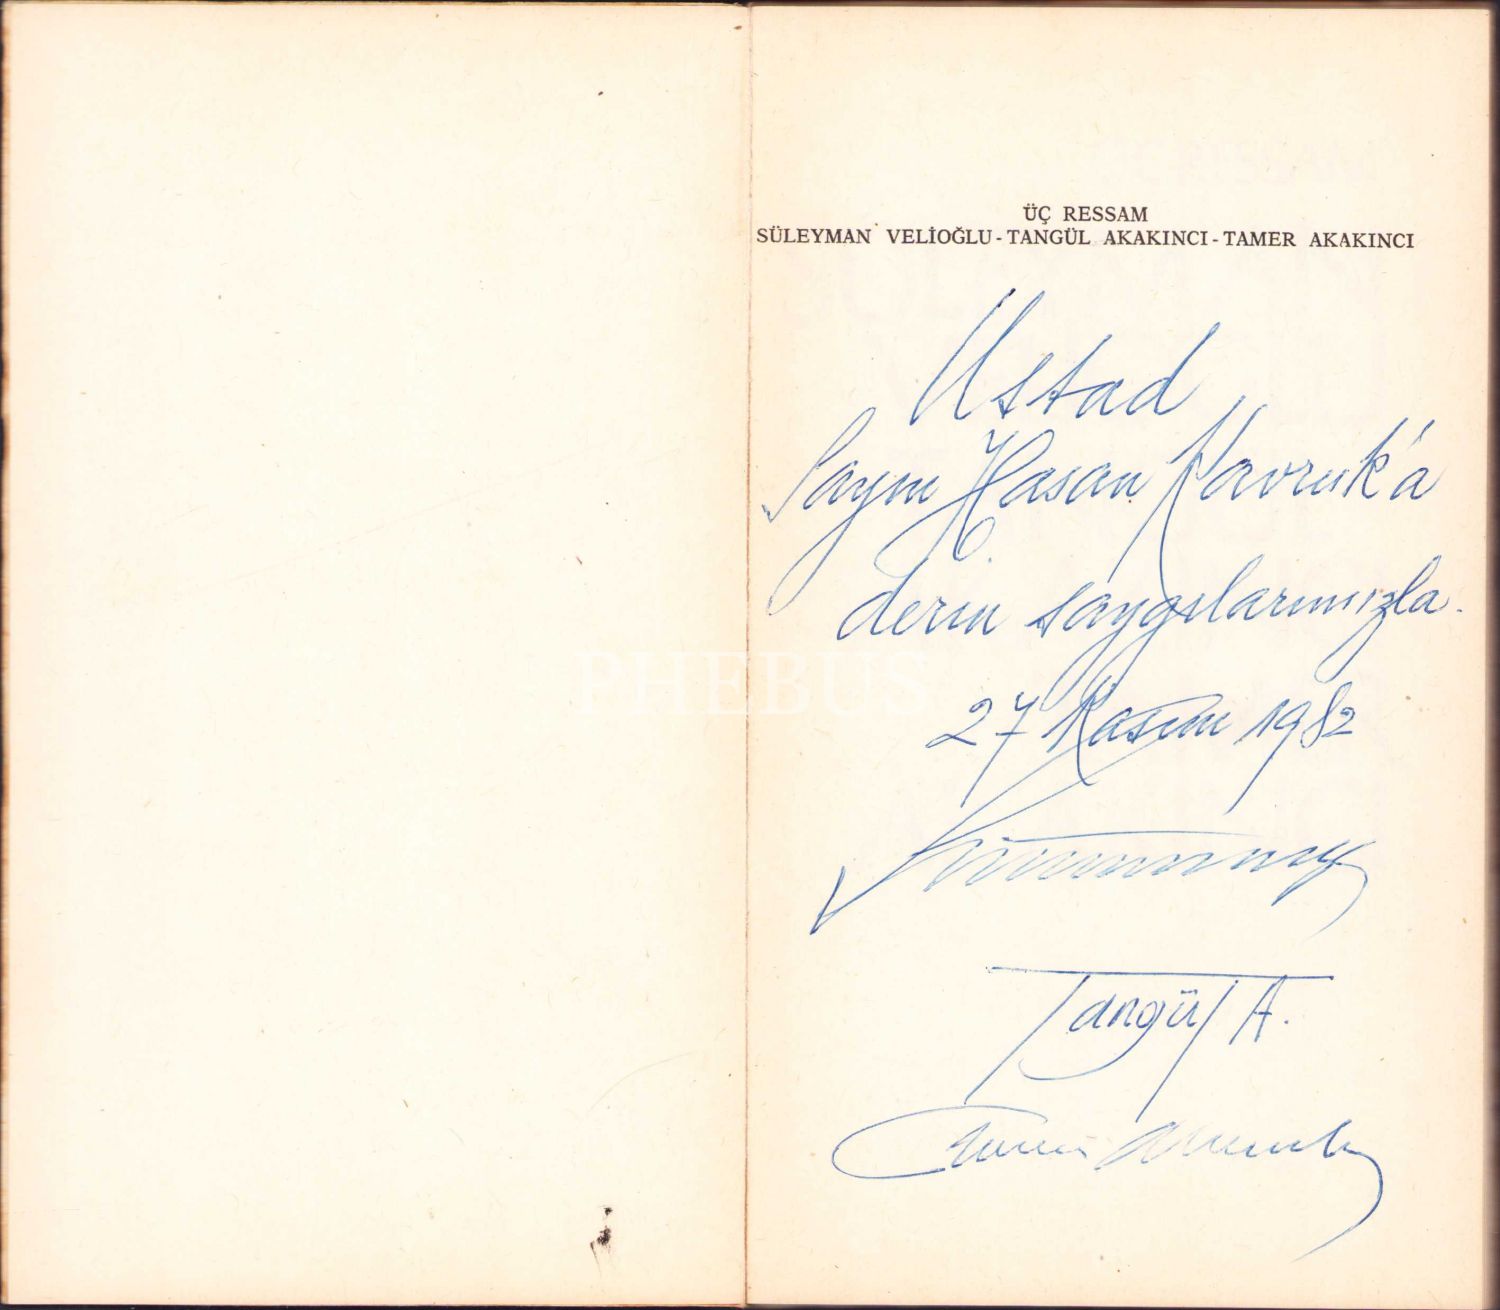 ÜÇ RESSAM
SÜLEYMAN VELİOĞLU-TANGÜL AKAKINCI-TAMER AKAKINCI
Üstad
Sayın Hasan Kavruk'a
derin saygılarımızla.
PHEBUS
27 Kasım 1982
Tangül A.